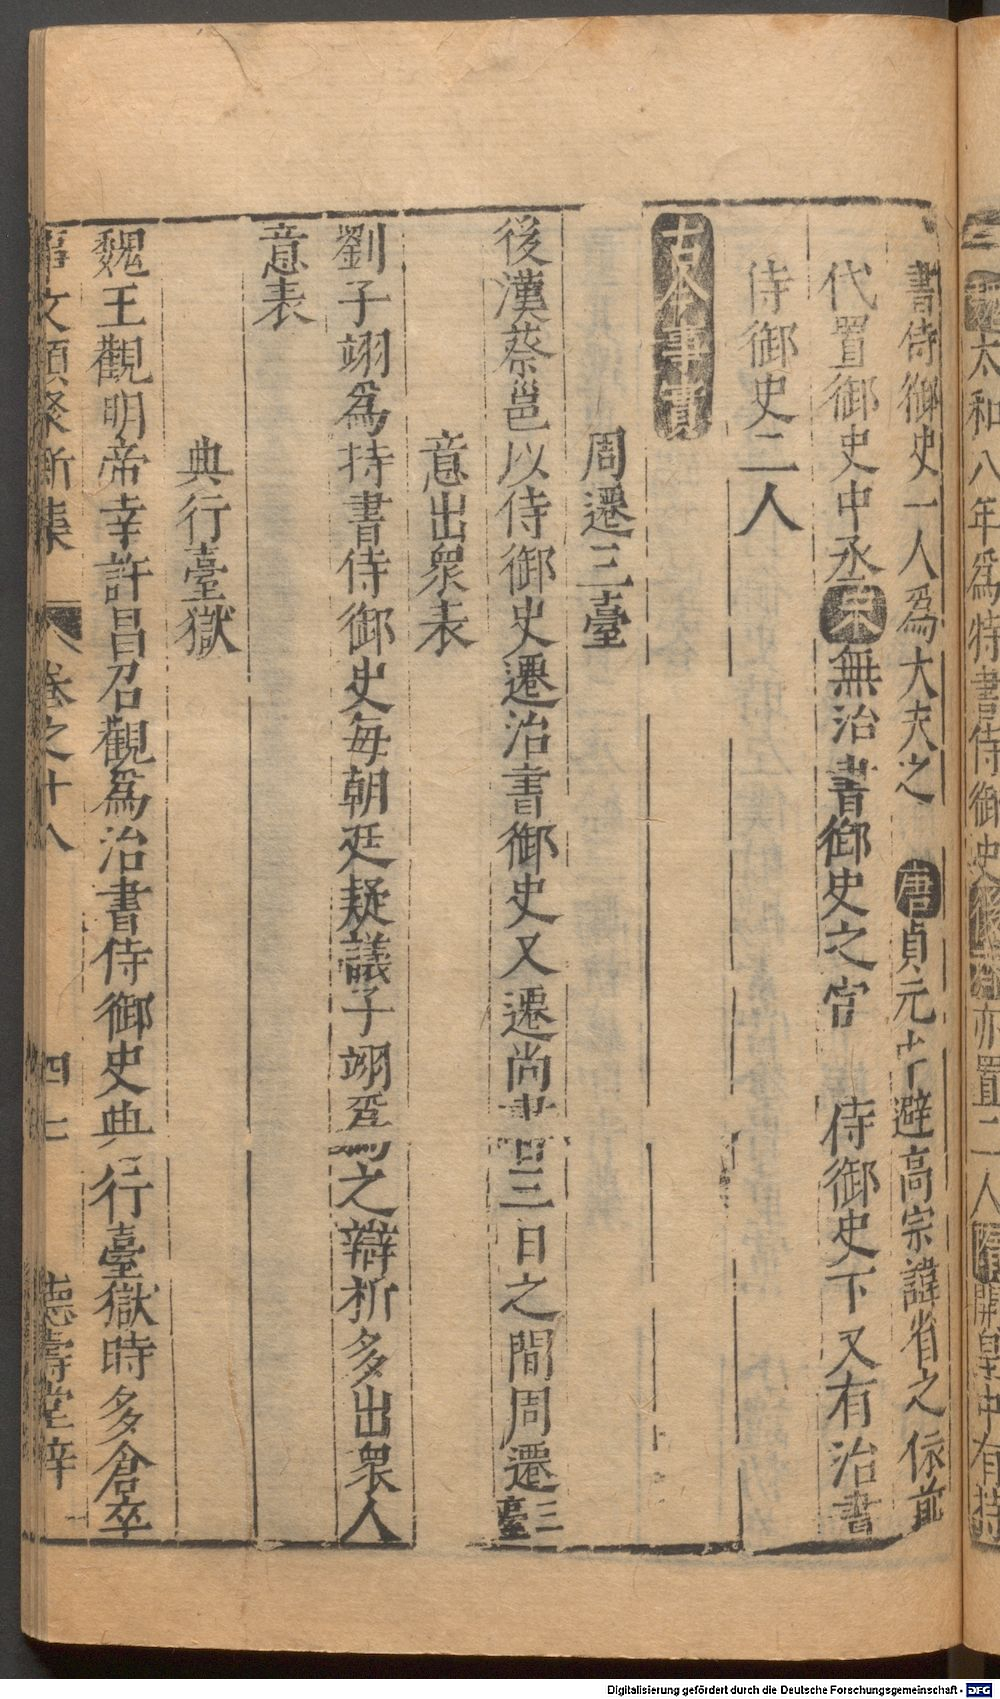 太和八年為持書侍御史後齊亦置二人隋開皇中有持
書侍御史一人爲大夫之 唐貞元中避高宗諱省之依前
代置御史中丞宋無治書御史之官 侍御史下又有治書
侍御史二人
古今事實
周遷三臺
後漢蔡邕以侍御史遷治書御史又遷尚書三日之間周遷三臺
意出衆表
劉子翊爲持書侍御史每朝廷疑議子翊爲之辯析多出衆人
意表
典行臺獄
魏王觀明帝幸許昌召觀爲治書侍御史典行臺獄時多倉卒
事文類聚新集 卷之十八 四七 德壽堂梓
Digitalisierung gefördert durch die Deutsche Forschungsgemeinschaft - DFG